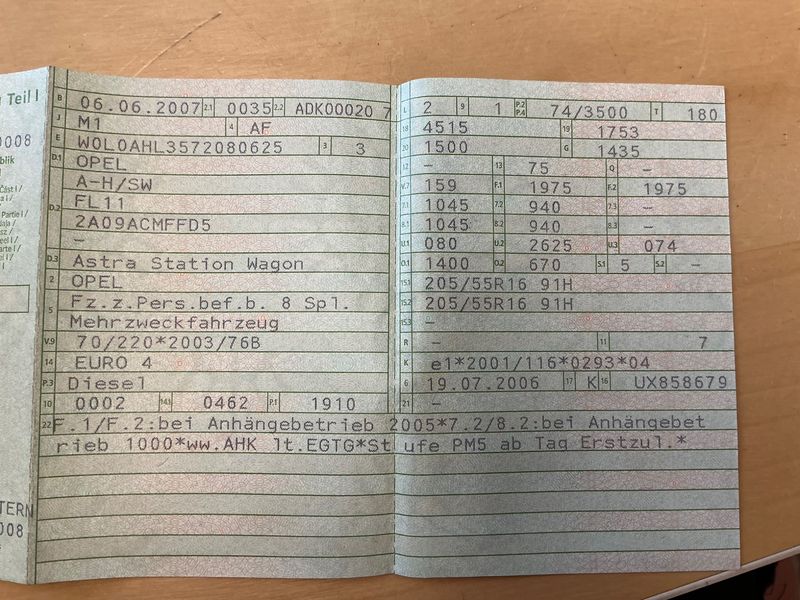 Teil I
0008
blik
Část I /
Partie I /
B 06.06.2007 2.1 0035 2.2 ADK00020 7
J M1 4 AF
E W0L0AHL3572080625 3 3
D.1 OPEL
A-H/SW
D.2 FL11
2A09ACMFFD5
–
D.3 Astra Station Wagon
2 OPEL
5 Fz.z.Pers.bef.b. 8 Spl.
Mehrzweckfahrzeug
V.9 70/220*2003/76B
14 EURO 4
P.3 Diesel
10 0002 14.1 0462 P.1 1910
L 2 9 1 P.2 P.4 74/3500 T 180
18 4515 19 1753
20 1500 G 1435
12 – 13 75 Q –
V.7 159 F.1 1975 F.2 1975
7.1 1045 7.2 940 7.3 –
8.1 1045 8.2 940 8.3 –
U.1 080 U.2 2625 U.3 074
O.1 1400 O.2 670 S.1 5 S.2 –
15.1 205/55R16 91H
15.2 205/55R16 91H
15.3 –
R – 11 7
K e1*2001/116*0293*04
6 19.07.2006 17 K 16 UX858679
21 –
22 F.1/F.2:bei Anhängebetrieb 2005*7.2/8.2:bei Anhängebet
rieb 1000*ww.AHK lt.EGTG*Stufe PM5 ab Tag Erstzul.*
TERN
008